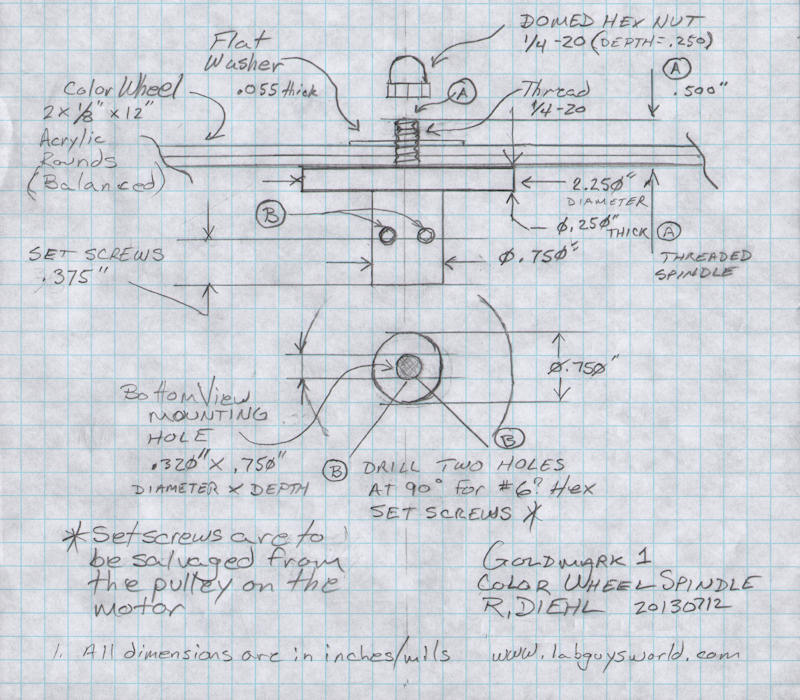 DOMED HEX NUT
1/4-20 (DEPTH=.250)
Flat
Washer
.055 thick
A
A
.500"
Thread
1/4-20
Color Wheel
2 x 1/8" x 12"
Acrylic
Rounds
(Balanced)
2.250"
DIAMETER
B
0.250"
THICK
A
SET SCREWS
.375"
0.750"
THREADED
SPINDLE
0.750"
Bottom View
MOUNTING
HOLE
.320" X .750"
DIAMETER X DEPTH
B
B
DRILL TWO HOLES
AT 90° For #6? Hex
SET SCREWS *
* Setscrews are to
be salvaged from
the pulley on the
motor
GOLDMARK 1
COLOR WHEEL SPINDLE
R. DIEHL 20130712
1. All dimensions are in inches/mils
www.labguysworld.com